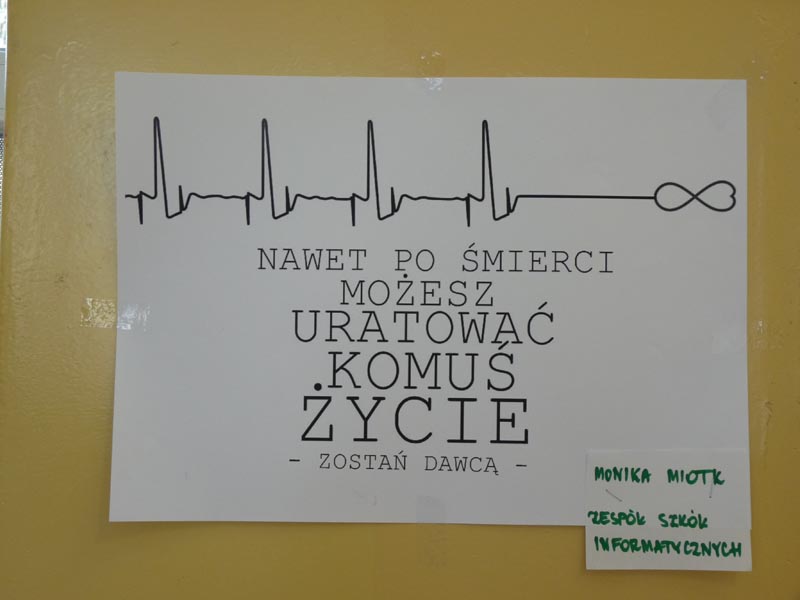 NAWET PO ŚMIERCI
MOŻESZ
URATOWAĆ
KOMUŚ
ŻYCIE
- ZOSTAŃ DAWCĄ -
MONIKA MIOTK
ZESPÓŁ SZKÓŁ
INFORMATYCZNYCH